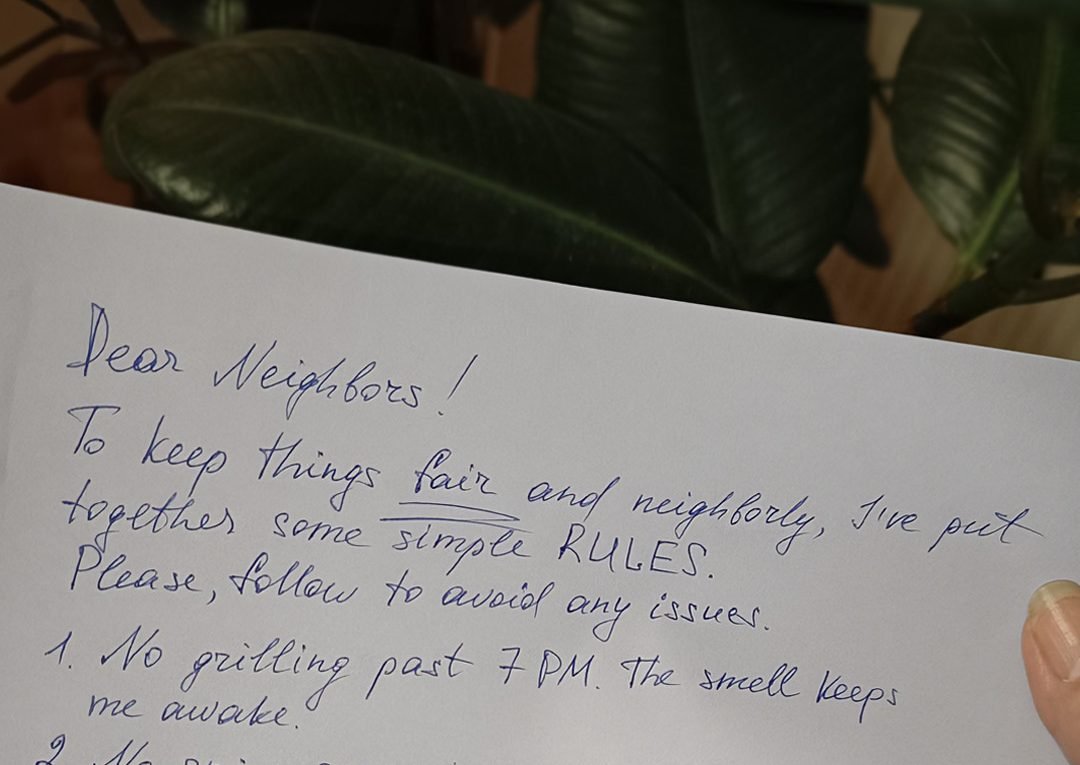 Dear Neighbors!
To keep things fair and neighborly, I've put
together some simple RULES.
Please, follow to avoid any issues.
1. No grilling past 7 PM. The smell keeps
me awake.
2. No